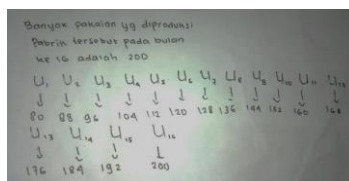 Banyak pakaian yg diproduksi
Pabrik tersebut pada bulan
ke 16 adalah 200
U₁ U₂ U₃ U₄ U₅ U₆ U₇ U₈ U₉ U₁₀ U₁₁ U₁₂
↓ ↓ ↓ ↓ ↓ ↓ ↓ ↓ ↓ ↓ ↓ ↓
80 88 96 104 112 120 128 136 144 152 160 168
U₁₃ U₁₄ U₁₅ U₁₆
↓ ↓ ↓ ↓
176 184 192 200